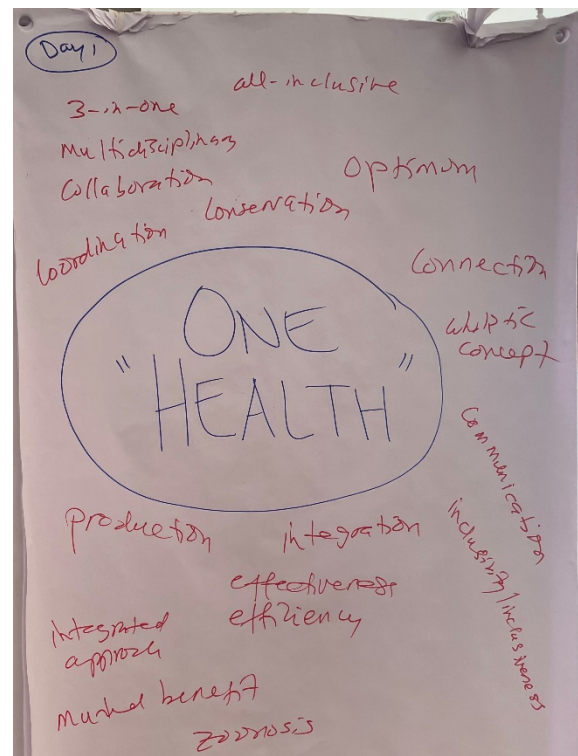 Day 1
all-inclusive
3-in-one
Multidisciplinary
Collaboration
Optimum
Conservation
Coordination
Connection
wholistic
concept
ONE
"HEALTH"
Communication
inclusivity/inclusiveness
production
integration
effectiveness
efficiency
integrated
approach
Mutual benefit
zoonosis